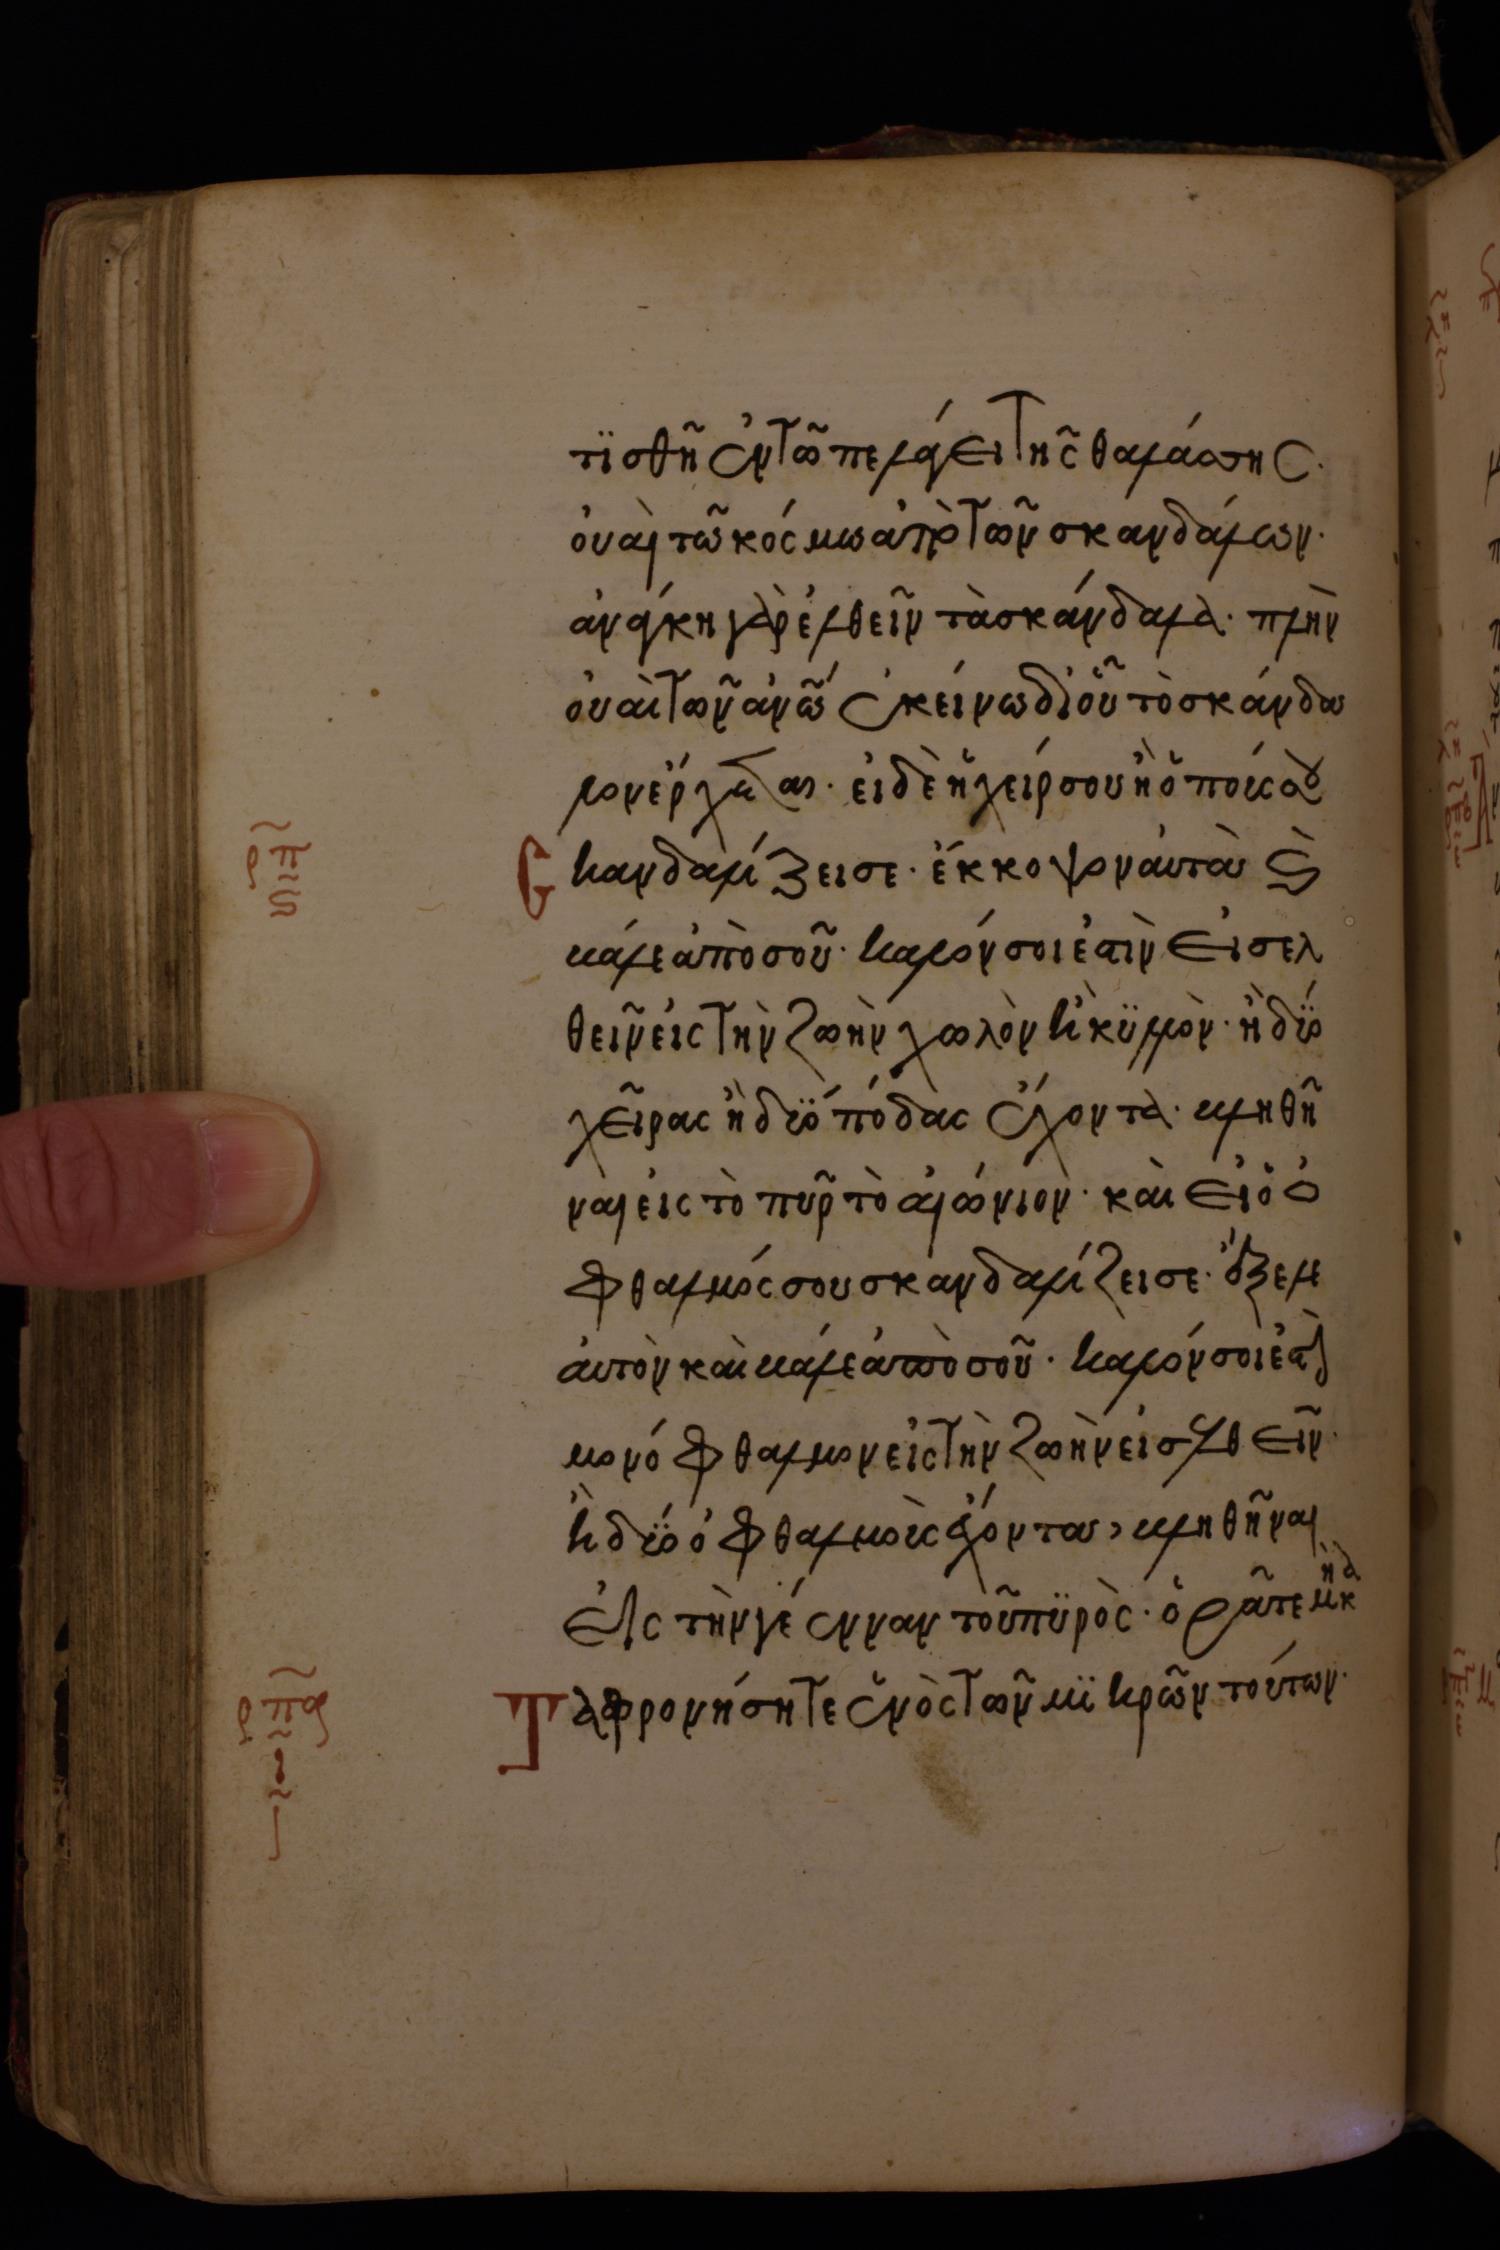 τϊσθῆ ἐν τῶ πελάγει τῆς θαλάσσης.
οὐαὶ τῶ κόσμω ἀπὸ τῶν σκανδάλων.
ἀνάγκη γὰρ ἐλθεῖν τὰ σκάνδαλα. πλὴν
οὐαὶ τῶ ἀνω ἐκείνω δι οὗ τὸ σκάνδα
λον ἔρχεται. εἰ δὲ ἡ χείρ σου ἢ ὁ πούς σου
σκανδαλίζει σε. ἔκκοψον αὐτὰ καὶ
βάλε ἀπὸ σοῦ. καλόν σοι ἐστὶν εἰσελ
θεῖν εἰς τὴν ζωὴν χωλὸν ἢ κϋλλὸν. ἢ δϋό
χεῖρας ἢ δϋό πόδας ἔχοντα. βληθῆ
ναι εἰς τὸ πῦρ τὸ αἰώνιον. καὶ εἰ ὁ ὀ
φθαλμός σου σκανδαλίζει σε. ἔξελε
αὐτὸν καὶ βάλε ἀπὸ σοῦ. καλόν σοι ἐστὶ
μονόφθαλμον εἰς τὴν ζωὴν εἰσελθεῖν.
ἢ δϋό ὀφθαλμοὺς ἔχοντα, βληθῆναι
εἰς τὴν γέενναν τοῦ πϋρὸς. ὁρᾶτε μὴ κα
ταφρονήσητε ἑνὸς τῶν μϊκρῶν τούτων.